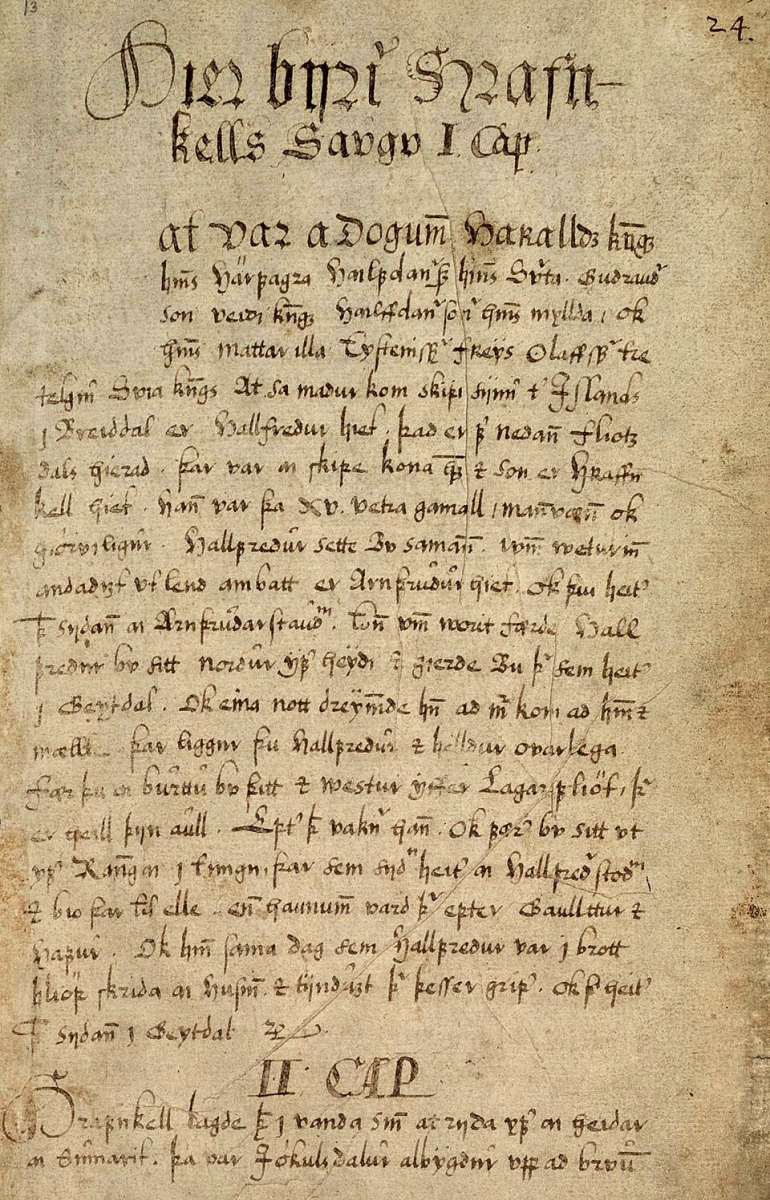 13
24.
Hier byri᷑ Hrafn-
kells Saugu I Cap
at var a Dogum̄ Haralldz kn̄gz
hm̄s Hárfagra Halfdan᷑ hm̄s Suarta. Gudraud᷑
son veidi kn̄gz Halffdan᷑ hm̄s mylldа, ok
hm̄s mattar illa Eysteinss᷑ freys Olaffss᷑ tre
telgiu Suia kn̄gs At sa madur kom skipi sijnu t᷑ Jslands
j Breiddal er Hallfredur hiet. þad er f᷑ nedan̄ fliotz
dals hierad. þar var a skipe kona hs̄ & son er Hraffn
kell hiet. han̄ var þa XV. vetra gamall, man̄væn̄ ok
giörviligur. Hallfredur sette Bu saman̄. vm̄ weturin̄
andadizt vt lend ambatt er Arnþrudur hiet. Ok þui heit᷑
þ᷑ sydan̄ a Arnþrudarstaudm̄. En̄ vm̄ worit færde Hall
fredur bu sitt nordur yf᷑ heydi & gierde Bu þ᷑ sem heit᷑
j Geytdal. Ok eina nott dreym̄de hn̄ ad m᷑ kom ad hm̄ &
mællte þar liggur þu Hallfredur & helldur ovarlega
Fær þu a burttu bu þitt & westur yffer Lagarfliöt, þ᷑
er heill þijn aull. Ept᷑ þ᷑ vakn᷑ han̄. Ok fær᷑ bu sitt vt
yf᷑ Ranḡa j tungu, þar sem syd᷑ heit᷑ a Hallfred᷑stodm̄,
& bio þar til elle. en̄ haunum̄ vard þ᷑ epter Gaullttur &
Hafur. Ok hin̄ sama dag sem Hallfredur var j brott
hliöp skrida a husin̄. & tyndust þ᷑ þesser grip᷑. Ok þ᷑ heit᷑
þ᷑ sydan̄ j Geytdal
II CAP
Hrafnkell lagde þ᷑ j vanda sin̄ at ryda yf᷑ a heidar
a sumarit. þa var Jökulsdalur albygdur vpp ad bruu᷑